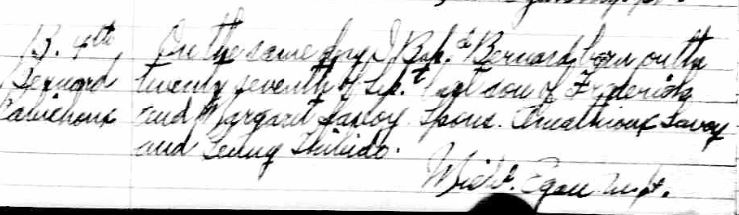 B. 4th On the same day I Bap.d Bernard, born on the
Bernard twenty seventh of Sep.t last son of Frederick
and Margaret Savoy. Spons. Savoy
and Fanny Thibido.
Mich. Egan Mipt.